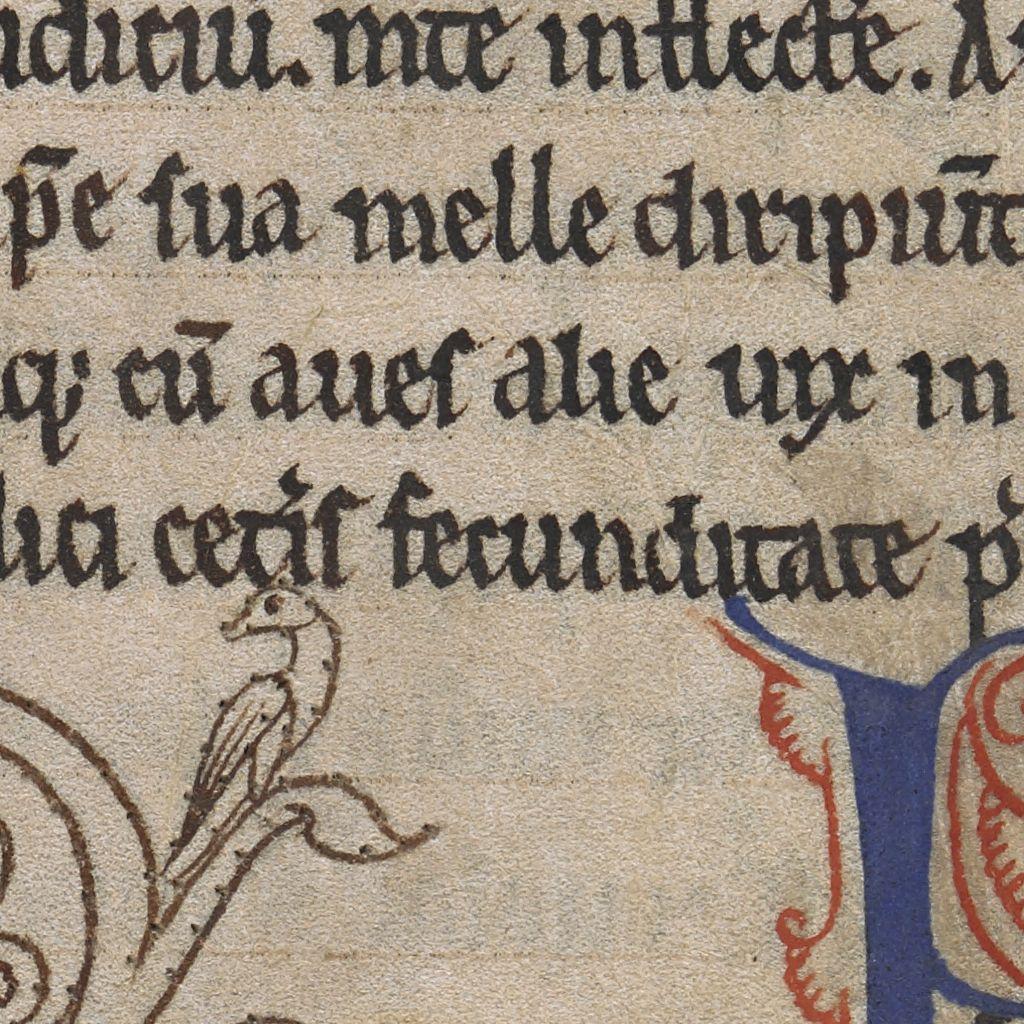 udiciu. mc̄e intlecte. A
p̄e sua melle diripiūt
q; cū aues alie uix in
lici cet̉is fecunditate p̉